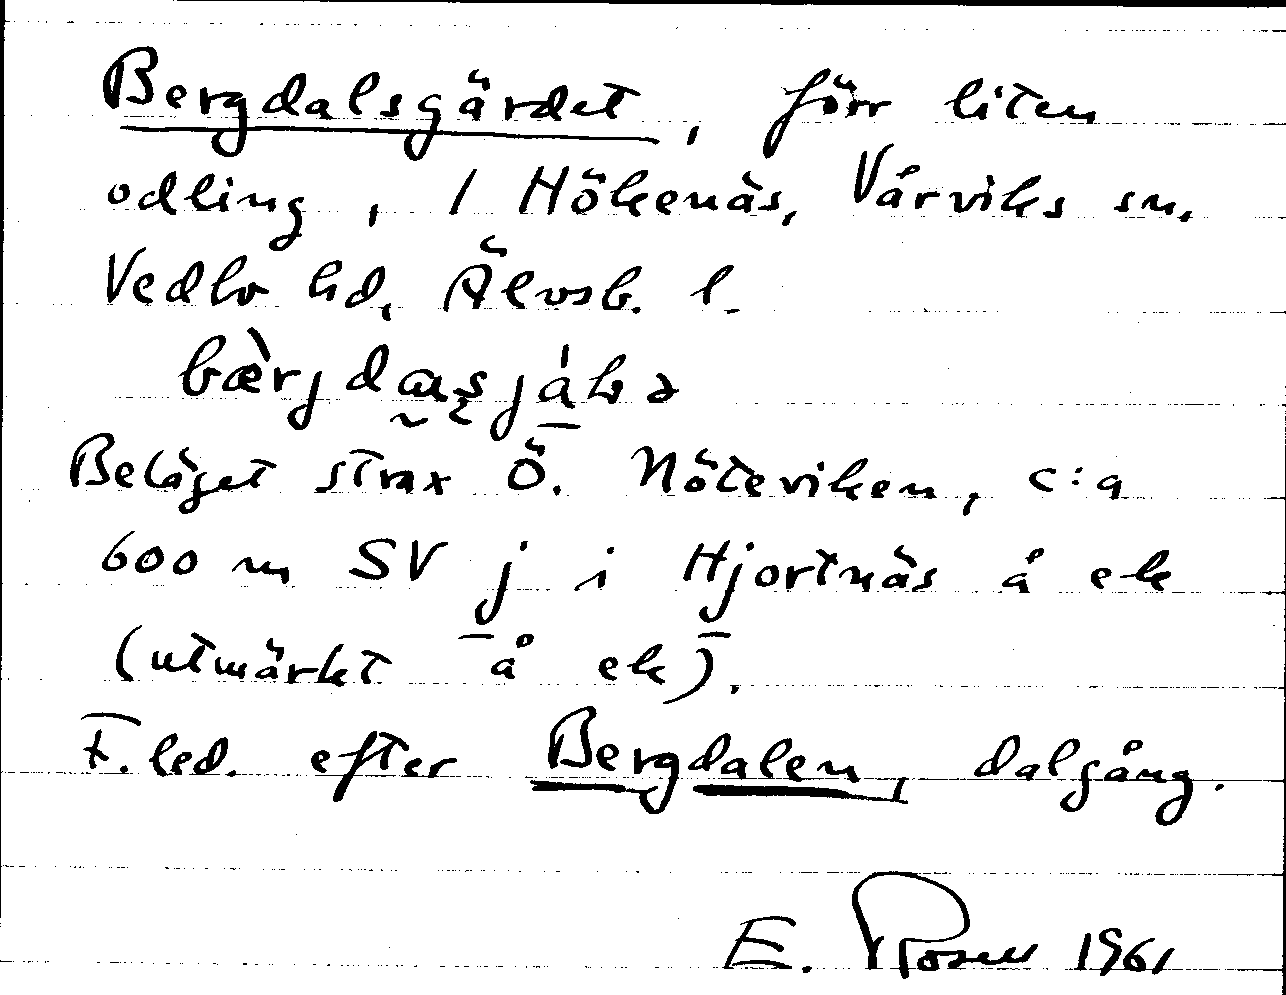 Bergdalsgärdet, förr liten
odling, 1 Hökenäs, Vårviks sn,
Vedbo hd, Älvsb. l.
Beläget strax Ö. Nöteviken, c:a
600 m SV j i Hjortnäs å ek
(utmärkt å ek).
F. led. efter Bergdalen, dalgång.
E. Rosell 1961